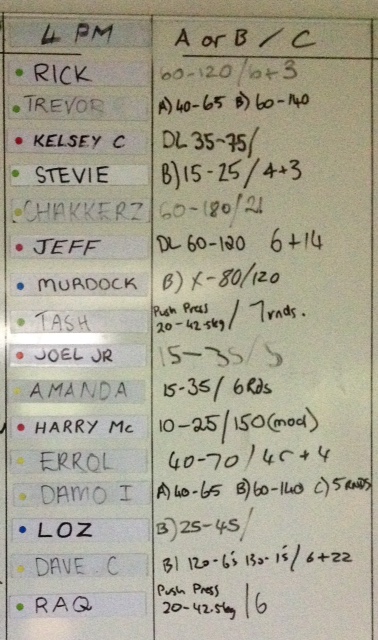 4 PM A or B / C
RICK 60-120 / 6+3
TREVOR A) 40-65 B) 60-140
KELSEY C DL 35-75/
STEVIE B) 15-25 / 4+3
CHAKKERZ 60-180/21
JEFF DL 60-120 6+14
MURDOCK B) X-80/120
TASH Push Press
20-42.5kg / 7rnds.
JOEL JR 15-35/5
AMANDA 15-35 / 6Rds
HARRY Mc 10-25/150(mod)
ERROL 40-70 / 4r+4
DAMO I A) 40-65 B) 60-140 C) 5RNDS
LOZ B) 25-45/
DAVE C B) 120-6's 130-15/ 6+22
RAQ Push Press
20-42.5kg / 6